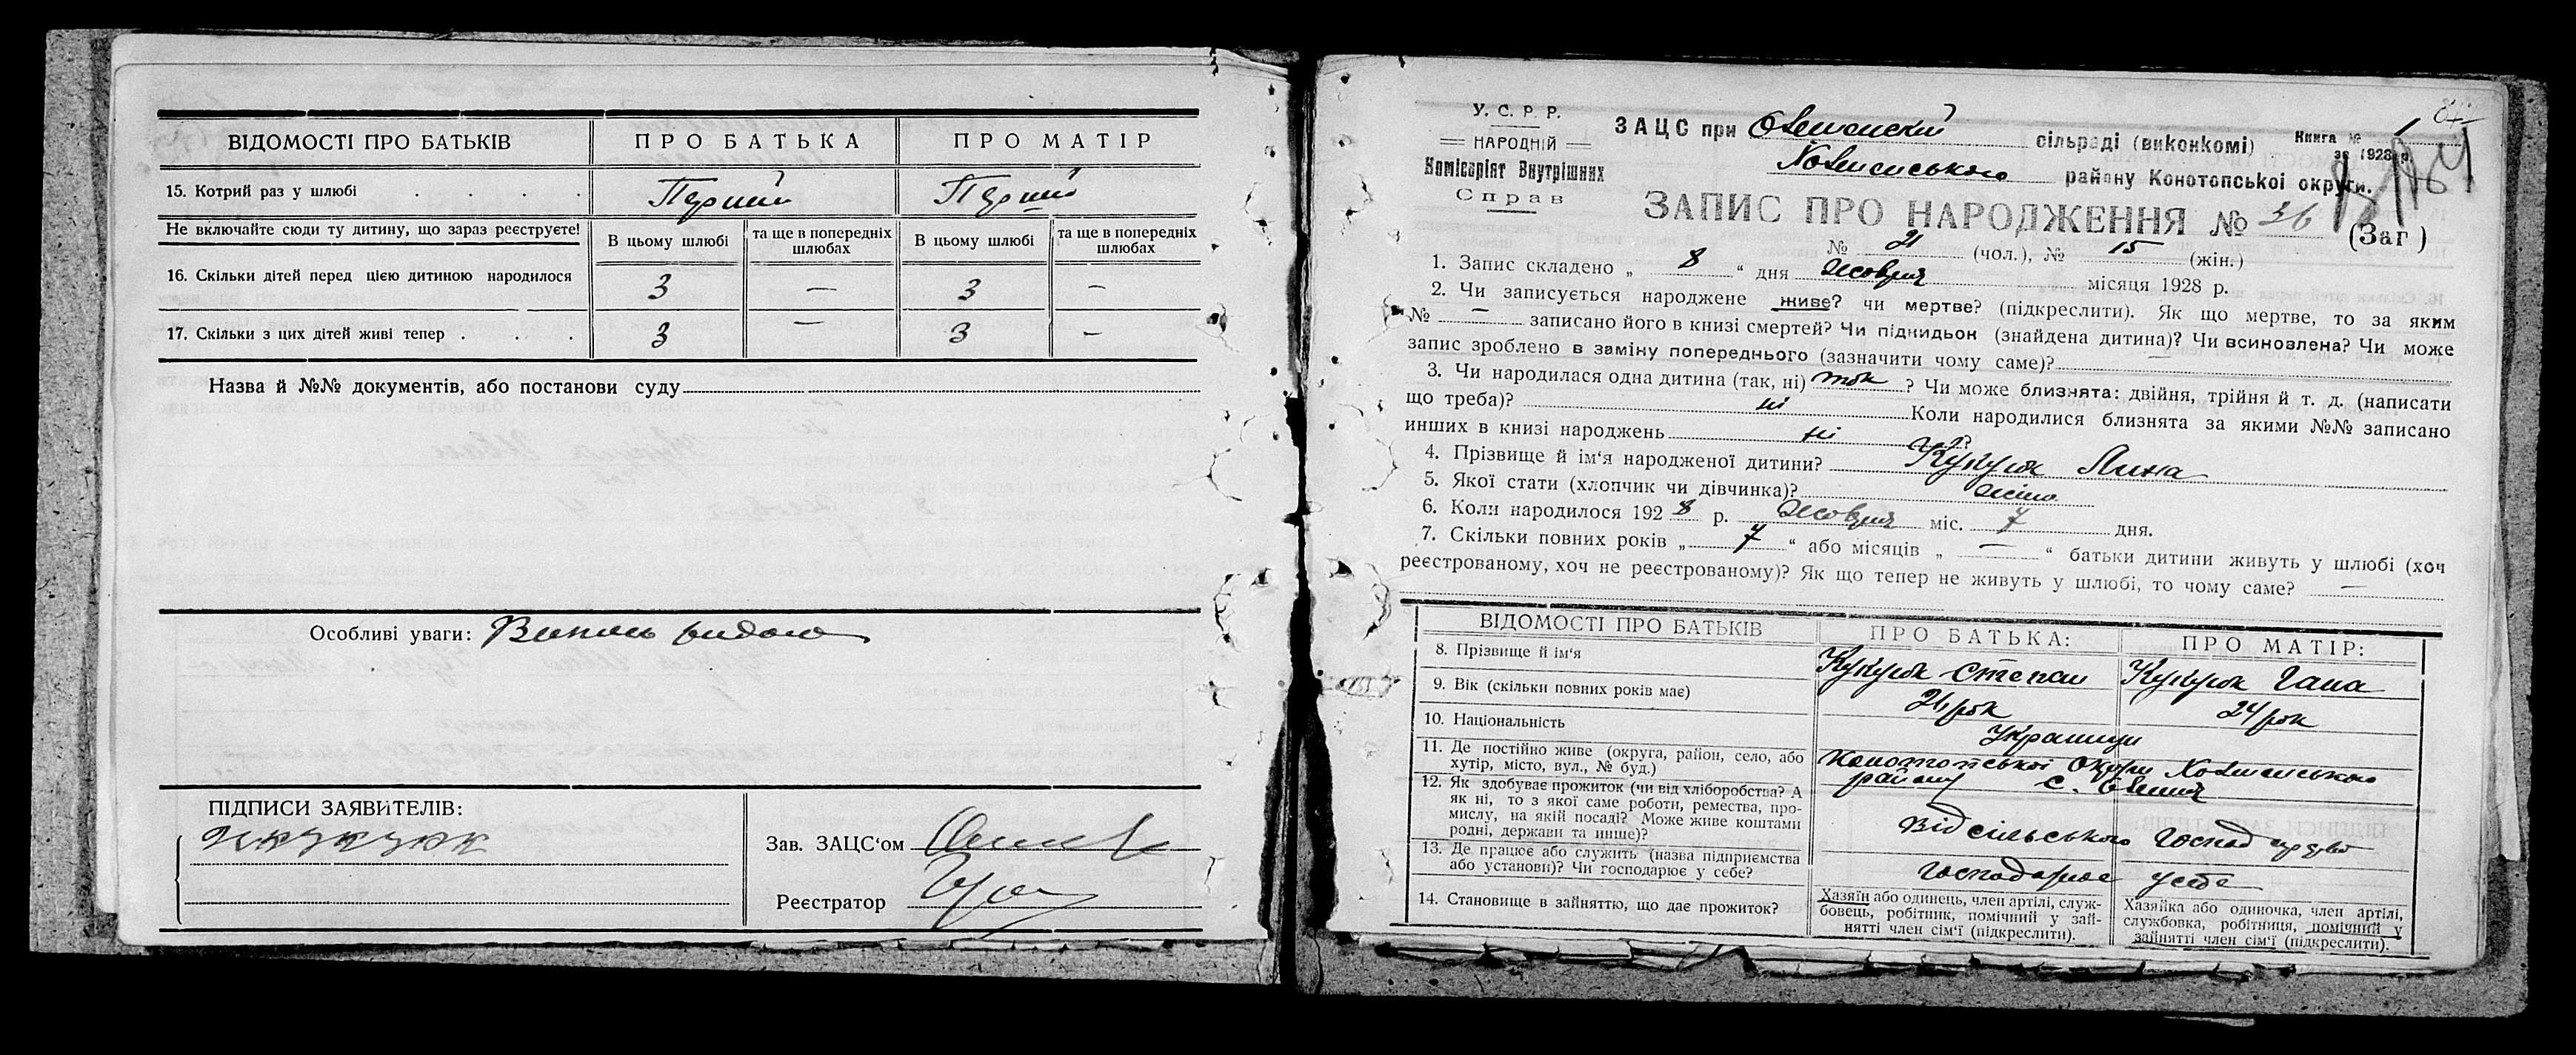 ВІДОМОСТІ ПРО БАТЬКІВ
ПРО БАТЬКА
ПРО МАТІР
15. Котрий раз у шлюбі . . . Перший Перший
Не включайте сюди ту дитину, що зараз реєструєте!
В цьому шлюбі
та ще в попередніх шлюбах
В цьому шлюбі
та ще в попередніх шлюбах
16. Скільки дітей перед цією дитиною народилося 3 — 3 —
17. Скільки з цих дітей живі тепер . . . 3 — 3 —
Назва й №№ документів, або постанови суду
Особливі уваги:
ПІДПИСИ ЗАЯВИТЕЛІВ:
Зав. ЗАЦС‘ом
Реєстратор
У. С. Р. Р.
НАРОДНІЙ
Комісаріят Внутрішних
Справ
ЗАЦС при сільраді (виконкомі)
Книга № 1
за 1928 р.
району Конотопської округи.
ЗАПИС ПРО НАРОДЖЕННЯ № 36 (Заг)
№ 21 (чол.), № 15 (жін.)
1. Запис складено „ 8 “ дня Жовтня місяця 1928 р.
2. Чи записується народжене живе? чи мертве? (підкреслити). Як що мертве, то за яким
№ — записано його в книзі смертей? Чи підкидьок (знайдена дитина)? Чи всиновлена? Чи може
запис зроблено в заміну попереднього (зазначити чому саме)? —
3. Чи народилася одна дитина (так, ні) так ? Чи може близнята: двійня, трійня й т. д. (написати
що треба)? ні Коли народилися близнята за якими №№ записано
инших в книзі народжень ні ?
4. Прізвище й ім‘я народженої дитини?
5. Якої стати (хлопчик чи дівчинка)?
6. Коли народилося 192 8 р. Жовтня міс. 7 дня.
7. Скільки повних років „ 7 “ або місяців „ — “ батьки дитини живуть у шлюбі (хоч
реєстрованому, хоч не реєстрованому)? Як що тепер не живуть у шлюбі, то чому саме? —
ВІДОМОСТІ ПРО БАТЬКІВ
ПРО БАТЬКА:
ПРО МАТІР:
8. Прізвище й ім‘я Степан Гана
9. Вік (скільки повних років має) 26 рок 24 рок
10. Національність Українци
11. Де постійно живе (округа, район, село, або
хутір, місто, вул., № буд.)
Конотопської Округи
району с.
12. Як здобуває прожиток (чи від хліборобства? А
як ні, то з якої саме роботи, ремества, про-
мислу, на якій посаді? Може живе коштами
родні, держави та инше)?
Від сільського господарства
13. Де працює або служить (назва підприємства
або установи)? Чи господарює у себе?
господарює у себе
14. Становище в зайняттю, що дає прожиток?
Хазяїн або одинець, член артілі, служ-
бовець, робітник, помічний у зай-
нятті член сім‘ї (підкреслити).
Хазяйка або одиночка, член артілі,
службовка, робітниця, помічний у
зайнятті член сім‘ї (підкреслити).